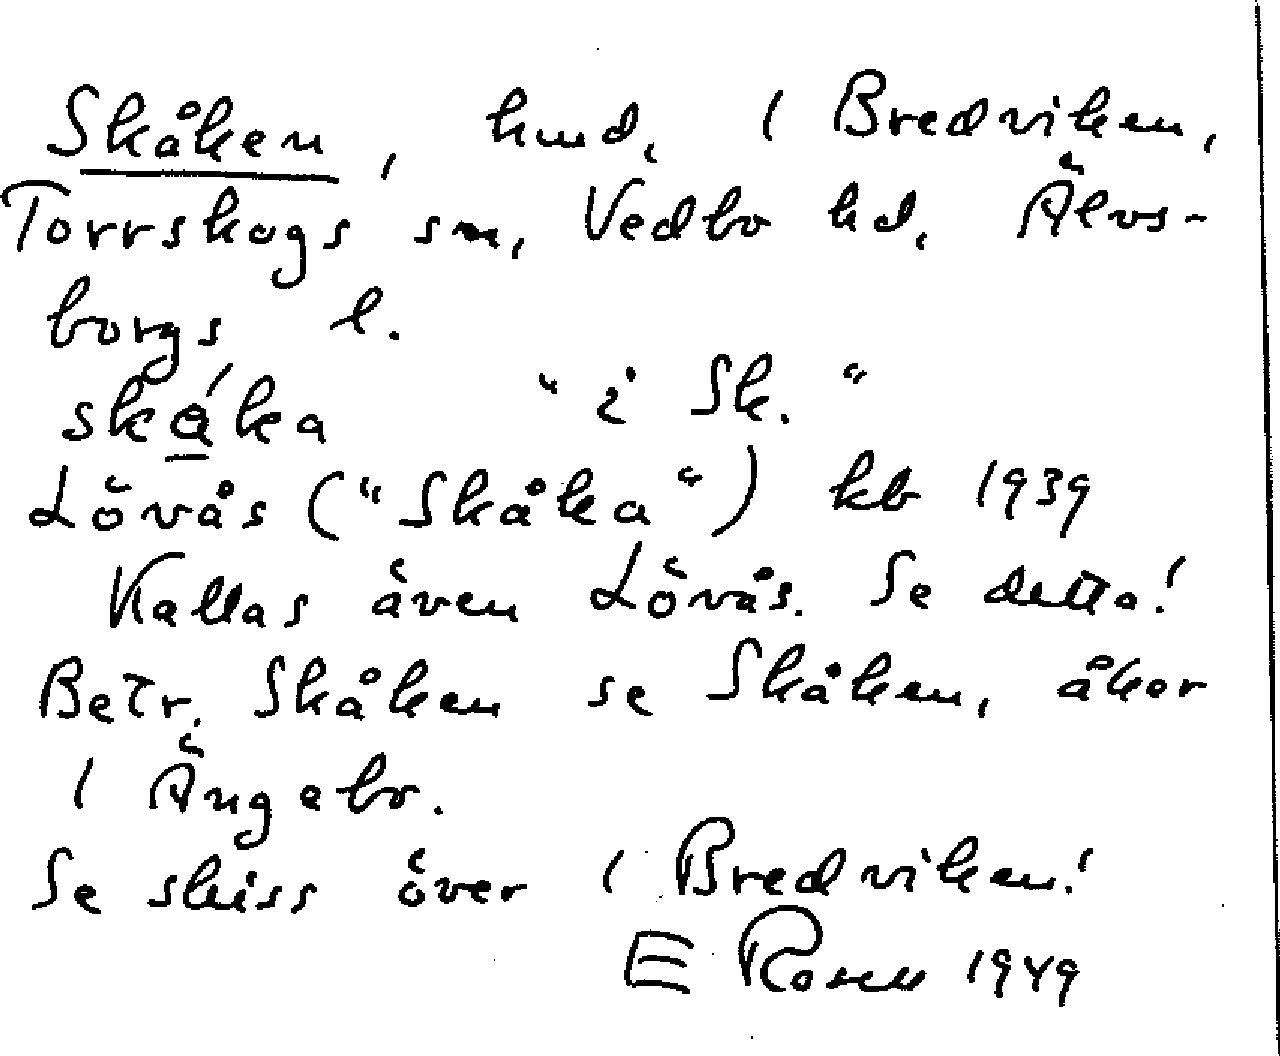 Skåken, hmd, 1 Bredviken,
Torrskogs sn, Vedbo hd, Älvs-
borgs l.
skǻka "i Sk."
Lövås ("Skåka") kb 1939
Kallas även Lövås. Se detta!
Betr. Skåken se Skåken, åker
1 Ängebo.
Se skiss över 1 Bredviken!
E Rosell 1949